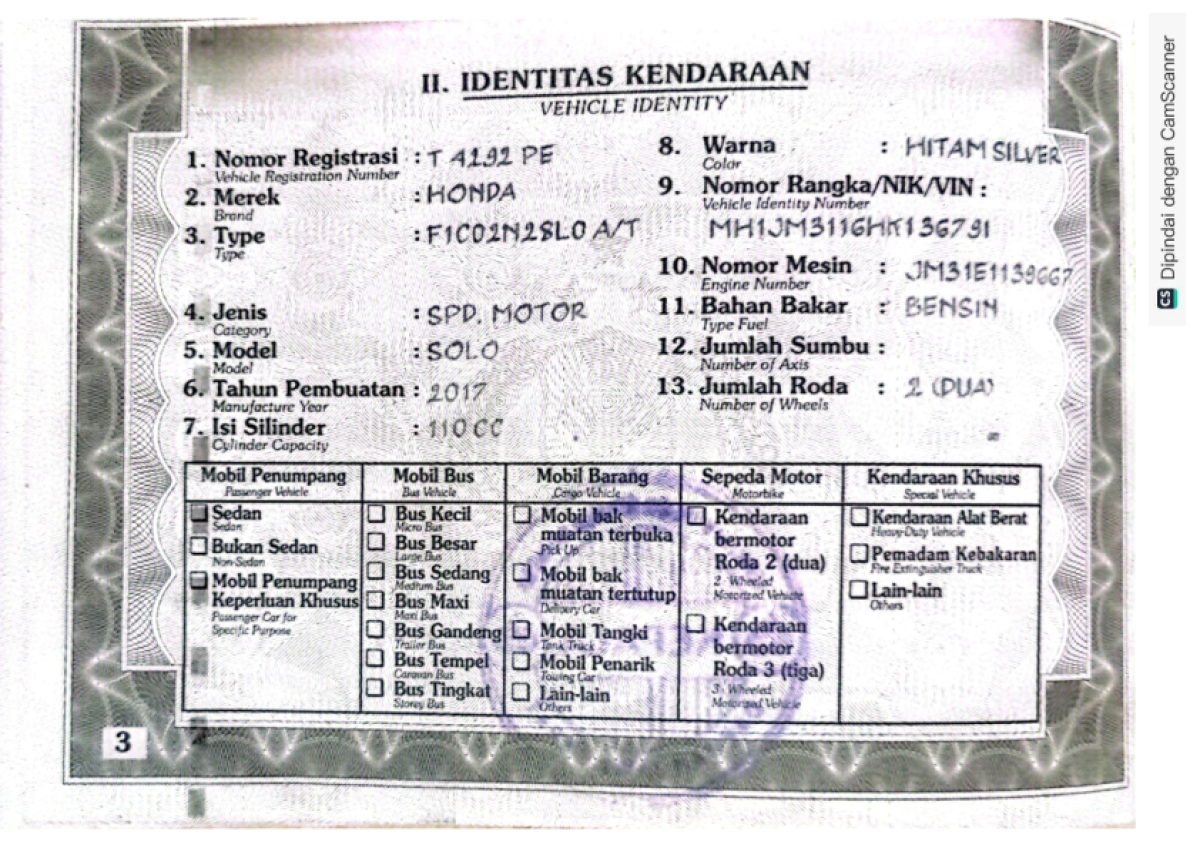 II. IDENTITAS KENDARAAN
VEHICLE IDENTITY
1. Nomor Registrasi : T 4192 PE
Vehicle Registration Number
2. Merek : HONDA
Brand
3. Type : F1C02N28L0 A/T
Type
4. Jenis : SPD. MOTOR
Category
5. Model : SOLO
Model
6. Tahun Pembuatan : 2017
Manufacture Year
7. Isi Silinder : 110 CC
Cylinder Capacity
8. Warna : HITAM SILVER
Color
9. Nomor Rangka/NIK/VIN :
Vehicle Identity Number
MH1JM3116HK136791
10. Nomor Mesin : JM31E1139667
Engine Number
11. Bahan Bakar : BENSIN
Type Fuel
12. Jumlah Sumbu :
Number of Axis
13. Jumlah Roda : 2 (DUA)
Number of Wheels
Mobil Penumpang
Passenger Vehicle
Sedan
Sedan
Bukan Sedan
Non-Sedan
Mobil Penumpang
Keperluan Khusus
Passenger Car for
Specific Purpose
Mobil Bus
Bus Vehicle
Bus Kecil
Micro Bus
Bus Besar
Large Bus
Bus Sedang
Medium Bus
Bus Maxi
Maxi Bus
Bus Gandeng
Trailer Bus
Bus Tempel
Caravan Bus
Bus Tingkat
Storey Bus
Mobil Barang
Cargo Vehicle
Mobil bak
muatan terbuka
Pick Up
Mobil bak
muatan tertutup
Delivery Car
Mobil Tangki
Tank Truck
Mobil Penarik
Towing Car
Lain-lain
Others
Sepeda Motor
Motorbike
Kendaraan
bermotor
Roda 2 (dua)
2 - Wheeled
Motorized Vehicle
Kendaraan
bermotor
Roda 3 (tiga)
3 - Wheeled
Motorized Vehicle
Kendaraan Khusus
Special Vehicle
Kendaraan Alat Berat
Heavy-Duty Vehicle
Pemadam Kebakaran
Fire Extinguisher Truck
Lain-lain
Others
3
CS Dipindai dengan CamScanner